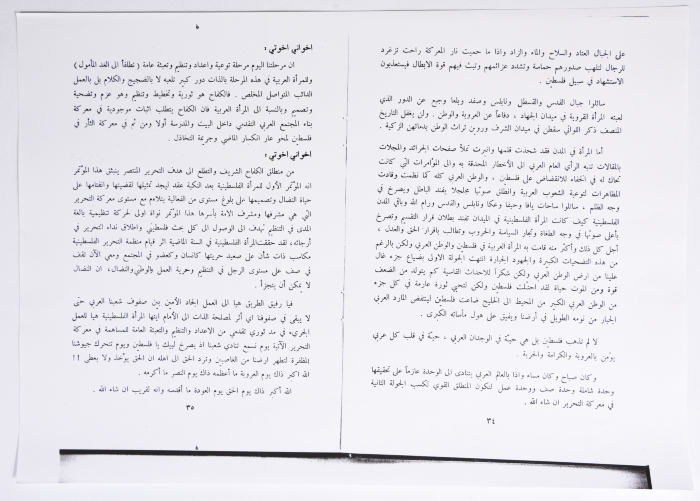 على الجبال العتاد والسلاح والماء والزاد واذا ما حميت نار المعركة راحت تزغرد
للرجال لتلهب صدورهم حماسة وتشدد عزائمهم وتبث فيهم قوة الابطال فيستعذبون
الاستشهاد في سبيل فلسطين .
سائلوا جبال القدس والقسطل ونابلس وصفد ويلعا وجمع عن الدور الذي
لعبته المرأة القروية في ميدان الجهاد ، دفاعاً عن العروبة والوطن . ولن يغفل التاريخ
المنصف ذكر اللواتي سقطن في ميدان الشرف وروين تراث الوطن بدمائهن الزكية .
أما المرأة في المدن فقد شحذت قلمها وانبرت تملأ صفحات الجرائد والمجلات
بالمقالات تنبه الرأي العام العربي الى الاخطار المحدقة به والى المؤامرات التي كانت
تحاك له في الخفاء للانقضاض على فلسطين ، والوطن العربي كله كما نظمت وقادت
المظاهرات لتوعية الشعوب العربية وانطلق صوتها مجلجلا يفند الباطل ويصرخ في
وجه الظلم ، سائلوا ساحات يافا وحيفا وعكا ونابلس والقدس ورام الله وباقي المدن
الفلسطينية كيف كانت المرأة الفلسطينية في الميدان تفند بطلان قرار التقسيم وتصرخ
بأعلى صوتها في وجه الطغاة وتجار السياسة والحروب وتطالب باقرار الحق والعدل ،
أجل كل ذلك وأكثر منه قامت به المرأة العربية في فلسطين والوطن العربي ولكن بالرغم
من هذه التضحيات الكبيرة والجهود الجبارة انتهت الجولة الاولى بضياع جزء غال
علينا من ارض الوطن العربي ولكن شكراً للاحداث القاسية كم يتولد من الضعف
قوة ومن الموت حياة لقد احتلت فلسطين ولكن لتحيي ثورة عارمة في كل جزء
من الوطن العربي الكبير من المحيط الى الخليج ضاعت فلسطين لينتفض المارد العربي
الجبار من نومه الطويل في أرضنا ويفيق على هول مأساته الكبرى .
لا لم تذهب فلسطين بل هي حية في الوجدان العربي ، حية في قلب كل عربي
يؤمن بالعروبة والكرامة والحرية .
وكان صباح وكان مساء واذا بالعالم العربي يتنادى الى الوحدة عازماً على تحقيقها
وحدة شاملة وحدة صف ووحدة عمل لتكون المنطلق القوي لكسب الجولة الثانية
في معركة التحرير ان شاء الله .
٣٤
اخواني اخوتي :
ان مرحلتنا اليوم مرحلة توعية واعداد وتنظيم وتعبئة عامة ( تطلعاً الى الغد المأمول )
وللمرأة العربية في هذه المرحلة بالذات دور كبير تلعبه لا بالضجيج والكلام بل بالعمل
الدائب المتواصل المخلص . فالكفاح هو ثورية وتخطيط وتنظيم وهو عزم وتضحية
وتصميم وبالنسبة الى المرأة العربية فان الكفاح يتطلب اثبات موجودية في معركة
بناء المجتمع العربي التقدمي داخل البيت والمدرسة أولا ومن ثم في معركة الثأر في
فلسطين لمحو عار انكسار الماضي وجريمة التخاذل .
اخواني أخوتي :
من منطلق الكفاح الشريف والتطلع الى هدف التحرير المنتصر ينبثق هذا المؤتمر
انه المؤتمر الأول للمرأة الفلسطينية بعد النكبة عقد ليجد تمثيلها لقضيتها وانغماسها على
حياة النضال وتصميمها على بلوغ مستوى من الفعالية يتلاءم مع مستوى معركة التحرير
التي هي مشرفها ومشرف الامة بأسرها هذا المؤتمر نواة اولى لحركة تنظيمية بالغة
المدى في التنظيم تهدف الى الوصول الى كل بحث فلسطيني واطلاق نداء التحرير في
أرجائه، لقد حققت المرأة الفلسطينية في السنة الماضية اثر قيام منظمة التحرير الفلسطينية
مكاسب ذات شأن على صعيد حريتها كانسان وكعضو في المجتمع ومعي الآن تقف
في صف على مستوى الرجل في التنظيم وحرية العمل والوطني والنضال، ان النضال
لا يمكن أن يتجزأ .
فيا رفيق الطريق هيا الى العمل الجاد الآمن بين صفوف شعبنا العربي حتى
لا يبقى في صفوفنا اي أثر لمصلحة الذات الى الأمام أيتها المرأة الفلسطينية هيا للعمل
الجريء في مد ثوري تقدمي من الاعداد والتنظيم والتعبئة العامة للمساهمة في معركة
التحرير الآتية يوم نسمع تنادي شعبنا اذ يصرخ لبيك يا فلسطين ويوم تتحرك جيوشنا
المظفرة لتطهر ارضنا من الغاصبين وترد الحق الى اهله ان الحق يؤخذ ولا يعطى !!
الله أكبر ذاك يوم العروبة ما أعظمه ذاك يوم النصر ما أكرمه .
الله أكبر ذاك يوم الحق يوم العودة ما أقدسه وانه لقريب ان شاء الله .
٣٥